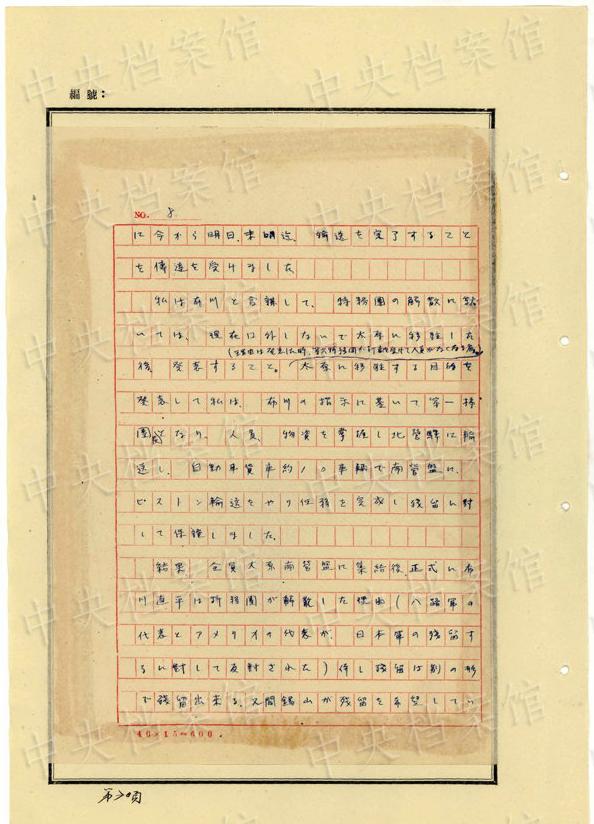 編號：
NO. 8
に今から明日、来明迄、輸送を完了すること
を傳達を受けました
私は布川と合議して、特務團の解散に就
いては、現在口外しないで太原に移駐した
後 発表すること。太原に移駐する日
発表して私は、布川の指示に基いて第一梯
團長となり、人員、物資を掌握し北営驛に輸
送し、自動車貨車約10車輌で南営盤に、
ピストン輸送をやり任務を完成し残留に対
して保護しました。
結果 全員太原南営盤に集結後、正式に布
川直平は特務團が解散した理由（八路軍の
代表とアメリカの代表が、日本軍の残留す
るに対して反対された）併し残留は別の形
で残留出来る、又閻錫山が残留を希望してい
40×15=600.
第30頁
中央档案馆